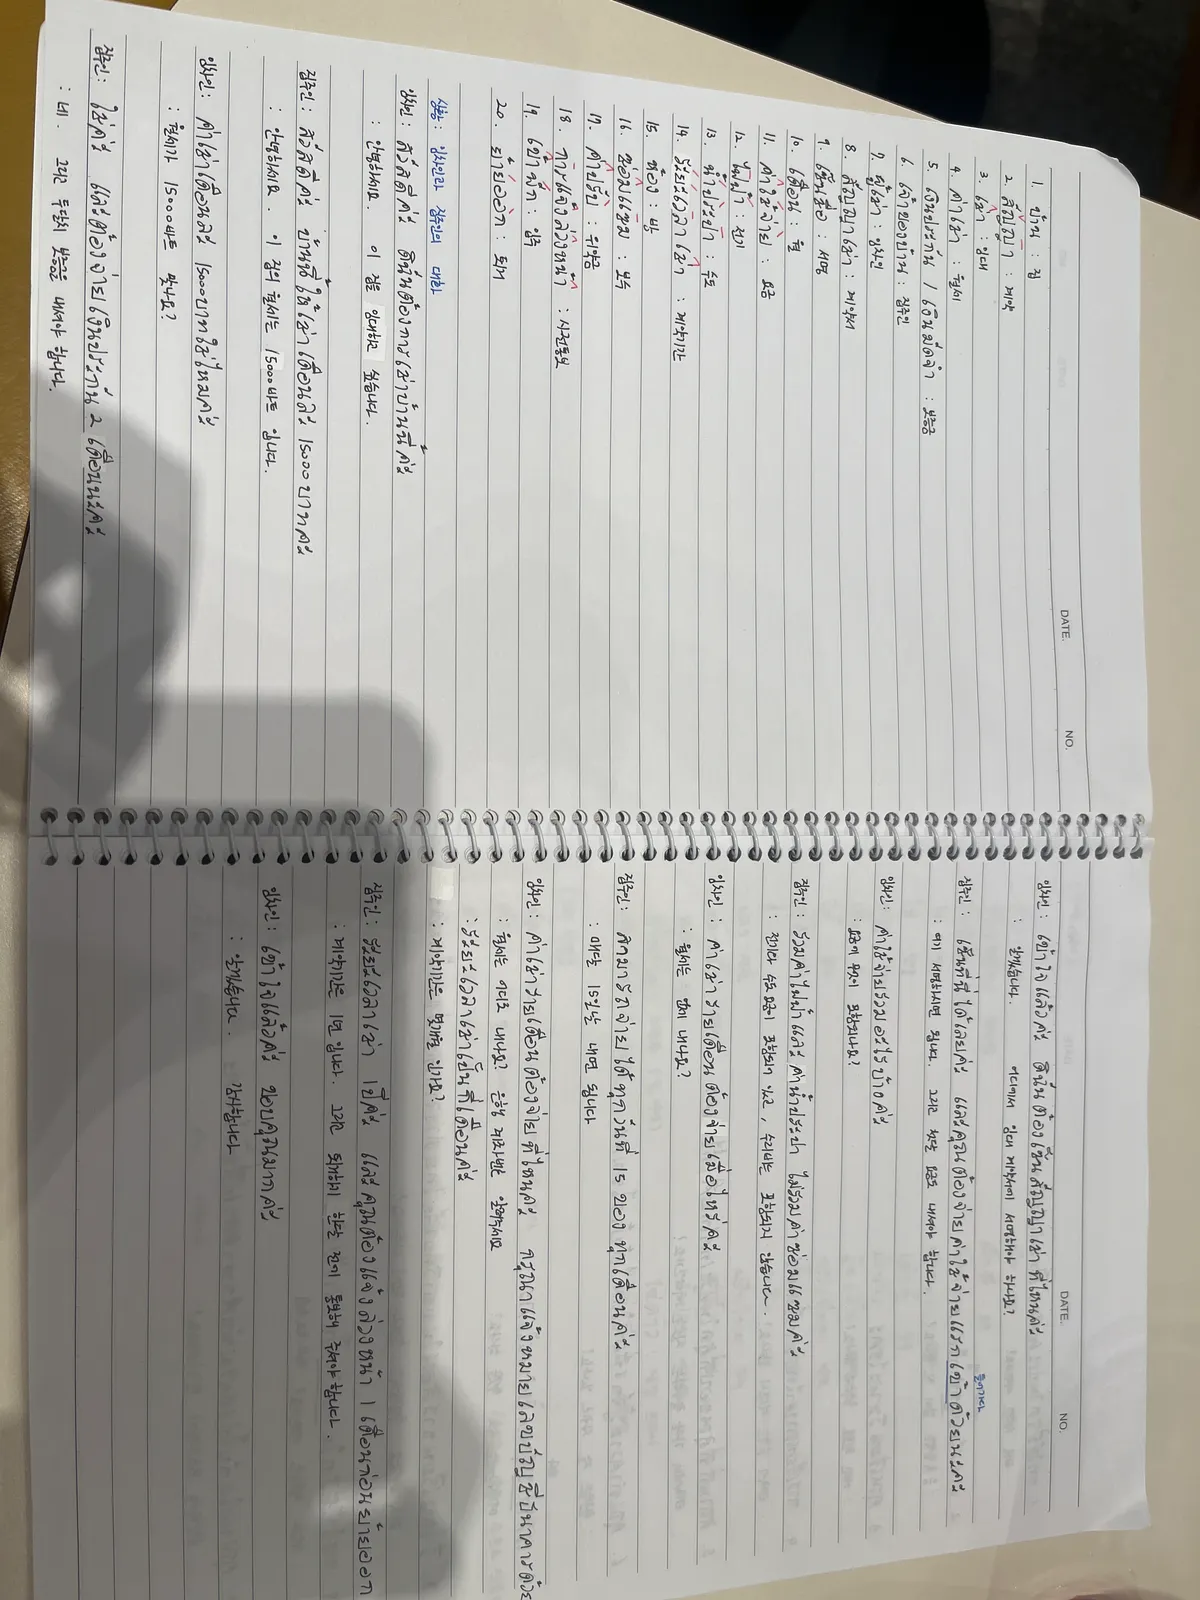 DATE. NO.
1. บ้าน : 집
2. สัญญา : 계약
3. เช่า : 임대
4. ค่าเช่า : 월세
5. เงินประกัน / เงินมัดจำ : 보증금
6. เจ้าของบ้าน : 집주인
7. ผู้เช่า : 임차인
8. สัญญาเช่า : 계약서
9. เซ็นชื่อ : 서명
10. เดือน : 월
11. ค่าใช้จ่าย : 요금
12. ไฟฟ้า : 전기
13. น้ำประปา : 수도
14. ระยะเวลาเช่า : 계약기간
15. ห้อง : 방
16. ซ่อมแซม : 보수
17. ค่าปรับ : 위약금
18. การแจ้งล่วงหน้า : 사전통보
19. เข้าพัก : 입주
20. ย้ายออก : 퇴거
상황 : 임차인과 집주인의 대화
임차인 : สวัสดีค่ะ ดิฉันต้องการเช่าบ้านนี้ค่ะ
: 안녕하세요. 이 집을 임대하고 싶습니다.
집주인 : สวัสดีค่ะ บ้านนี้ให้เช่าเดือนละ 15000 บาทค่ะ
: 안녕하세요. 이 집의 월세는 15000바트 입니다.
임차인 : ค่าเช่าเดือนละ 15000 บาทใช่ไหมคะ
: 월세가 15000바트 맞나요?
집주인 : ใช่ค่ะ และต้องจ่ายเงินประกัน 2 เดือนนะคะ
: 네. 그리고 두달치 보증금을 내셔야 합니다.
DATE. NO.
임차인 : เข้าใจแล้วค่ะ ดิฉันต้องเซ็นสัญญาเช่าที่ไหนคะ
: 알겠습니다. 어디에서 임대 계약서에 서명해야 하나요?
들어가다
집주인 : เซ็นที่นี่ได้เลยค่ะ และคุณต้องจ่ายค่าใช้จ่ายแรกเข้าด้วยนะคะ
: 여기 서명하시면 됩니다. 그리고 첫달 요금도 내셔야 합니다.
임차인 : ค่าใช้จ่ายรวมอะไรบ้างคะ
: 요금에 무엇이 포함되나요?
집주인 : รวมค่าไฟฟ้าและค่าน้ำประปา ไม่รวมค่าซ่อมแซมค่ะ
: 전기와 수도 요금이 포함되어 있고, 수리비는 포함되지 않습니다.
임차인 : ค่าเช่ารายเดือนต้องจ่ายเมื่อไหร่คะ
: 월세는 언제 내나요?
집주인 : สามารถจ่ายได้ทุกวันที่ 15 ของทุกเดือนค่ะ
: 매달 15일날 내면 됩니다
임차인 : ค่าเช่ารายเดือนต้องจ่ายที่ไหนคะ กรุณาแจ้งหมายเลขบัญชีธนาคารด้วย
: 월세는 어디로 내나요? 은행 계좌번호 알려주세요
: ระยะเวลาเช่าเป็นกี่เดือนคะ
: 계약기간은 몇개월 인가요?
집주인 : ระยะเวลาเช่า 1ปีค่ะ และคุณต้องแจ้งล่วงหน้า 1 เดือนก่อนย้ายออก
: 계약기간은 1년 입니다. 그리고 퇴거하시기 한달 전에 통보해 주셔야합니다.
임차인 : เข้าใจแล้วค่ะ ขอบคุณมากค่ะ
: 알겠습니다. 감사합니다